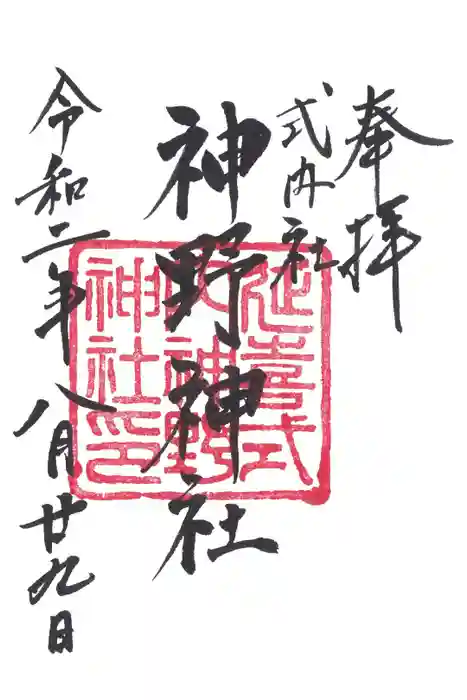 奉拝
式内社
神野神社
令和二年八月廿九日
延喜式
内神野
神社印